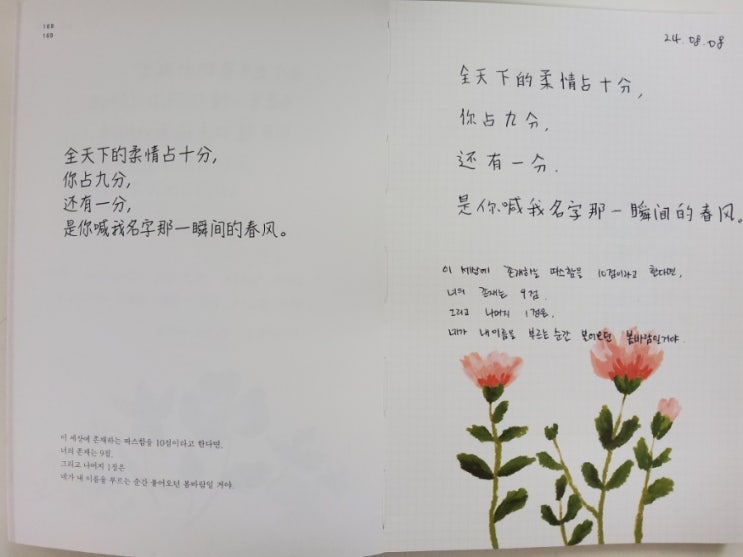 168
169
全天下的柔情占十分,
你占九分,
还有一分,
是你喊我名字那一瞬间的春风。
이 세상에 존재하는 따스함을 10점이라고 한다면,
너의 존재는 9점,
그리고 나머지 1점은
네가 내 이름을 부르는 순간 불어오던 봄바람일 거야.
24.08.08
全天下的柔情占十分,
你占九分,
还有一分.
是你喊我名字那一瞬间的春风。
이 세상에 존재하는 따스함을 10점이라고 한다면,
너의 존재는 9점.
그리고 나머지 1점은,
네가 내 이름을 부르는 순간 불어오던 봄바람일거야.